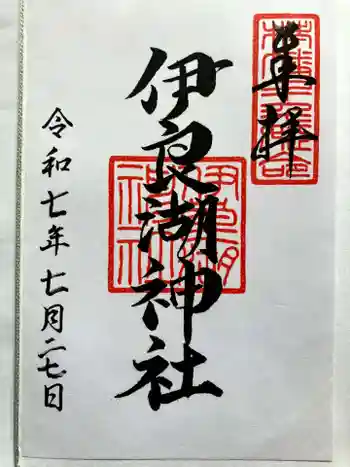 奉拝
伊良湖神社
令和七年七月二七日